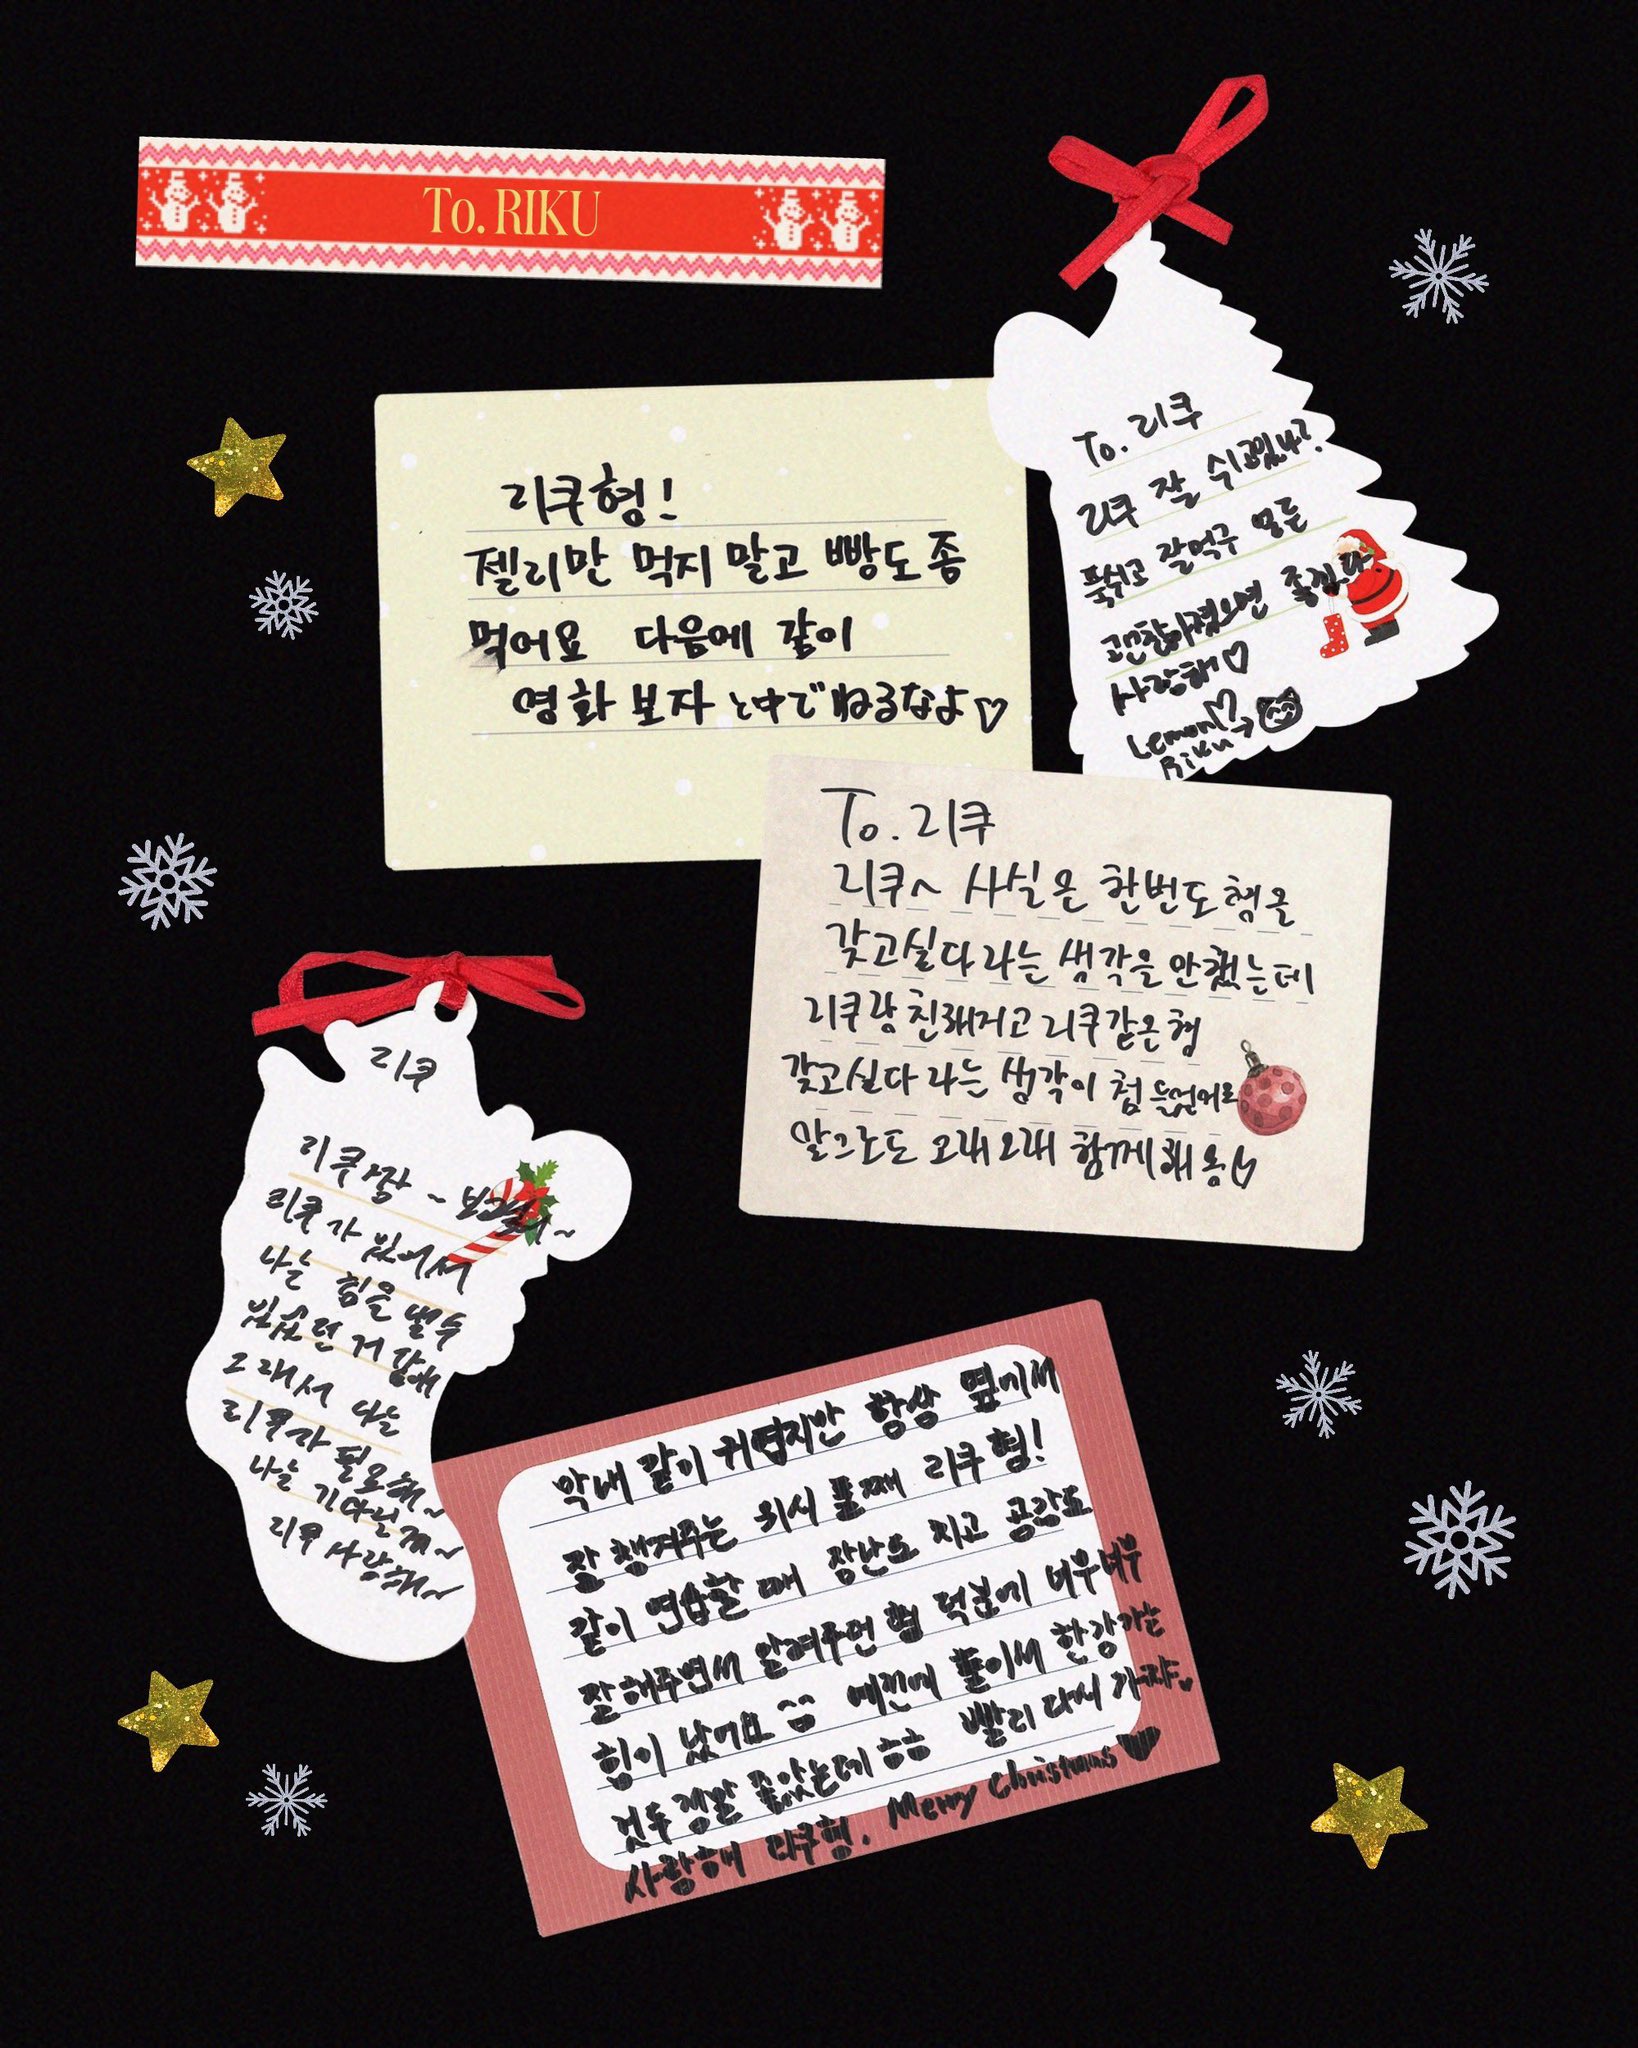 To. RIKU
리쿠형!
젤리만 먹지 말고 빵도 좀
먹어요 다음에 같이
영화 보자 と中でねるなよ♡
To. 리쿠
리쿠 잘 쉬고있나?
푹쉬고 잘먹구 얼른
괜찮아졌으면 좋겠다
사랑해♡
Lemon♡
Riku
To. 리쿠
리쿠~ 사실은 한번도 형을
갖고싶다 라는 생각을 안했는데
리쿠랑 친해지고 리쿠같은 형
갖고싶다 라는 생각이 첨 들었어
앞으로도 오래오래 함께해용♡
리쿠
리쿠짱~ 보고싶
리쿠가 있어서
나는 힘을 낼 수
있었던 거 같애
그래서 나는
리쿠가 필요해~
나는 기다릴게~
리쿠 사랑해~
막내 같이 귀엽지만 항상 옆에서
잘 챙겨주는 위시 둘째 리쿠형!
같이 연습할 때 장난도 치고 공감도
잘해주면서 알려주던 형 덕분에 너무너무
힘이 났어요 예전에 둘이서 한강가는
것두 정말 좋았는데ㅎㅎ 빨리 다시 가쟈♥
사랑해 리쿠형. Merry Christmas♥